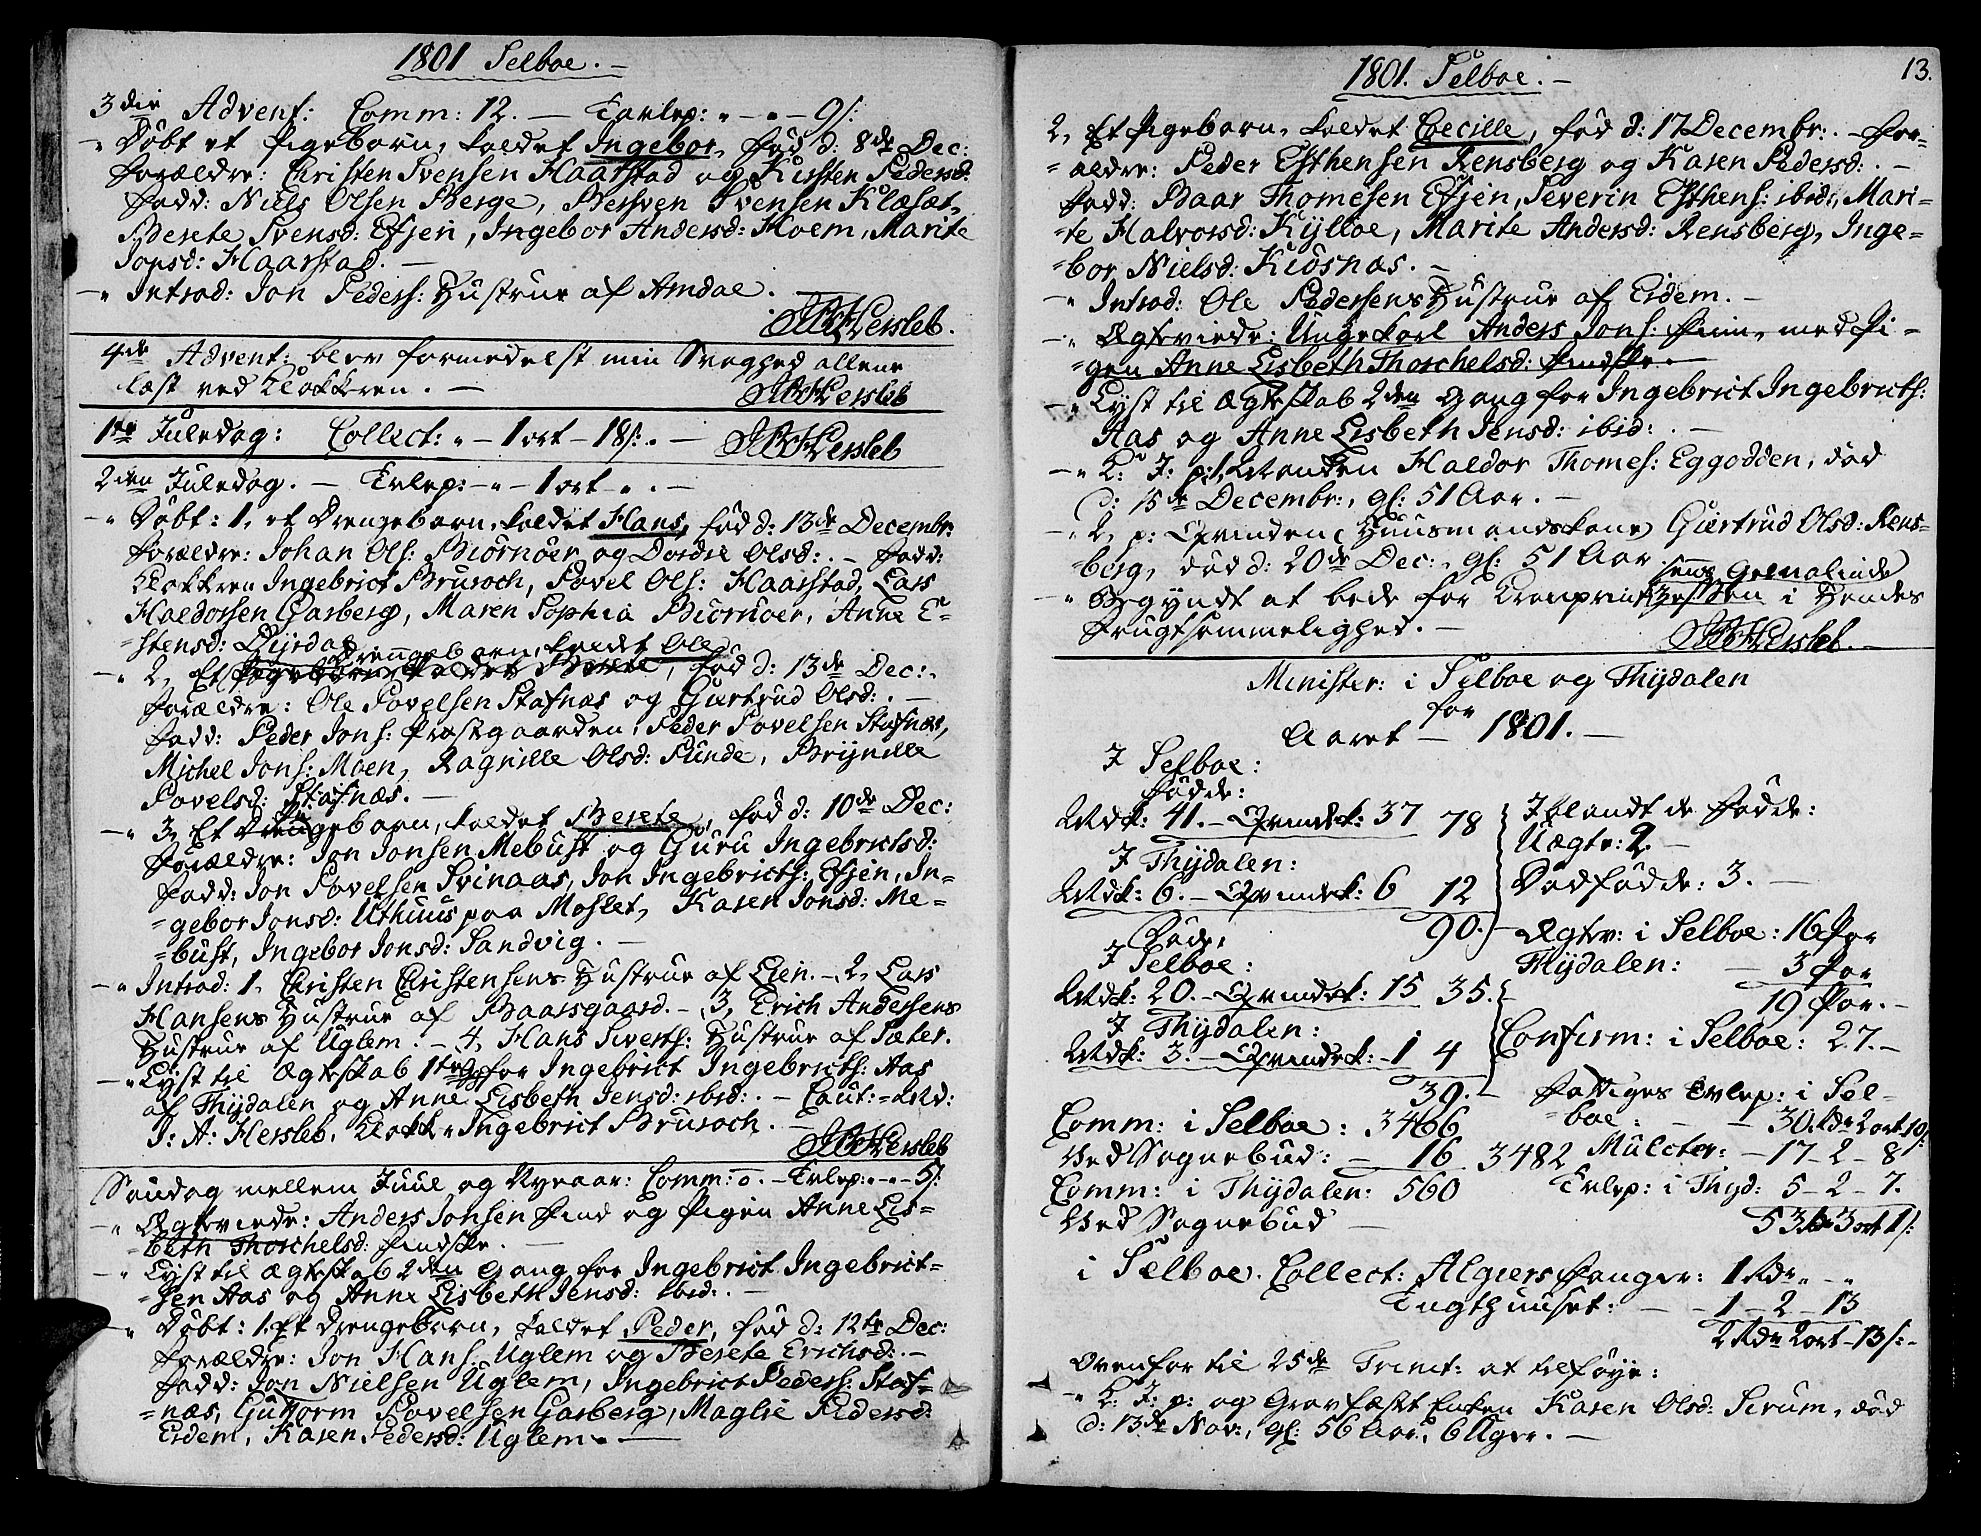 1801 Selboe. –
3die Advent: Comm: 12. – Tavlep: " – " – 9 s:
–" Döbt et Pigebarn, kaldet Ingebor, född d: 8de Dec:
Forældre: Christen Svensen Haarstad og Kirsten Pedersd:
Fadd: Niels Olsen Berge, Bersven Svensen Klæsæt,
Berete Svensd: Efjen, Ingebor Andersd: Moem, Marite
Jonsd: Haarstad. –
–" Introd: Jon Peders: Hustrue af Amdae. –
Hersleb.
4de Advent: blev formedelst min Svaghed allene
læst ved Klokkeren. –
Hersleb
1te Juledag: Collect: " – 1 ort – 18 s. – Hersleb
2den Juledag. – Tavlep: – " – 1 ort – " . –
–" Döbt: 1, et Drengebarn, kaldet Hans, föd d: 13de Decembr:
Forældre: Johan Ols: Biörnöer og Dordie Olsd: . – Fadd:
Klokkeren Ingebrict Brusoch, Povel Ols: Haarstad, Lars
Haldorsen Garberg, Maren Sophia Biörnöer, Anne E-
=stensd: Dyrdal
Drengebarn, kaldt Ole
–" 2, Et Pigebarn, kaldet Berete, föd d: 13de Dec: .
Forældre: Ole Povelsen Stafnæs og Giertrud Olsd: . –
Fadd: Peder Jons: Præstgaarden, Peder Povelsen Stafnæs,
Michel Jons: Moen, Ragnille Olsd: Sunde, Brynille
Povelsd: Stafnæs. –
–" 3, Et Drengebarn, kaldet Berete, föd d: 10de Dec:
Forældre: Jon Jonsen Mebust og Guru Ingebrictsd:
Fadd: Jon Povelsen Svinaas, Jon Ingebricts: Efjen, In=
=gebor Jonsd: Uthuus paa Moslet, Karen Jonsd: Me=
=bust, Ingebor Jonsd: Sandvig. –
–" Introd: 1, Christen Christensens Hustrue af Lien. – 2, Lars
Hansens Hustrue af Baarsgaard. – 3, Erich Andersens
Hustrue af Uglem. – 4, Hans Siverts: Hustrue af Sæter.
–" Lyst til Ægteskab 1te G: for Ingebrict Ingebricts: Aas
af Thydalen og Anne Lisbeth Jensd: ibid: . – Caut: = Md:
J: A: Hersleb, Klokk: Ingebrict Brusoch. –
Hersleb
Söndag mellem Juul og Nyeaar: Comm: o. – Tavlep: " – " – 5 s:
–" Ægteviede: Anders Jonsen Find og Pigen Anne Lis=
=beth Thorchelsd: Findske. –
–" Lyst til Ægteskab 2den Gang for Ingebrict Ingebrict=
=sen Aas og Anne Lisbeth Jensd: ibid: . –
–" Döbt: 1, Et Drengebarn, kaldet Peder, föd d: 12te Dec:
Forældre: Jon Hans: Uglem og Berete Erichsd: . –
Fadd: Jon Nielsen Uglem, Ingebrict Peders: Staf=
=næs, Guttorm Povelsen Garberg, Maglie Pedersd:
Eidem, Karen Pedersd: Uglem. –
1801. Selboe. –
13.
2, Et Pigebarn, kaldet Cecille, föd d: 17 Decembr: . – For=
=ældre: Peder Esthensen Rensberg og Karen Pedersd: . –
Fadd: Baar Thomesen Efjen, Severin Esthens: ibid:, Mari=
=te Halvorsd: Kylloe, Marite Andersd: Rensberg, Inge=
=bor Nielsd: Kiösnæs. –
–" Introd: Ole Pedersens Hustrue af Eidem. –
–" Ægteviede: Ungekarl Anders Jons: Finn, med Pi=
=gen Anne Lisbeth Thorchelsd: Findske. –
–" Lyst til Ægteskab 2den Gang for Ingebrict Ingebricts:
Aas og Anne Lisbeth Jensd: ibid: . –
–" L: J: p: 1, Manden Haldor Thomes: Eggodden, död
d: 15de Decembr:, gl: 51 Aar. –
–" 2, p: Qvinden (Huusmandskone) Giertrud Olsd: Rens=
=berg, död d: 20de Dec:, gl: 51 Aar.
–" Begyndt at bede for Kronprintzessen i Hendes
Frugtsommelighed. –
Hersleb. –
Minister: i Selboe og Thydalen
for
Aaret – 1801. –
I Selboe:
Födde:
Mdk: 41. – Qvindek: 37 78
I Thydalen:
Mdk: 6. – Qvindek: 6 12
90. –
Döde,
I Selboe:
Mdk: 20. – Qvindek: 15 35. –
I Thydalen:
Mdk: 3. – Qvindek: – 1 4
39. –
Comm: i Selboe: 3466
Ved Sognebud: – 16 3482
Comm: i Thydalen: 560
Ved Sognebud –
Iblandt de Födde:
Uægte: 2. –
Dödfödde: 3. –
Ægtev: i Selboe: 16 Par
Thydalen: – 3 Par
19 Par. –
Confirm: i Selboe: 27. –
Fattiges Tavlep: i Sel=
=boe: – – 30 Rdr 2 ort 10 s:
Mulcter: – 17 – 2 – 8
Tavlep: i Thyd: 5 – 2 – 7.
53 Rdr 3 ort 1 s:
i Selboe. Collect: Algiers Fanger: 1 Rdr " – "
Tugthuuset: – – 1 – 2 – 13
2 Rdr 2 ort – 13 s: –
Ovenfor til 25de Trinit: at tilföye:
–" L: J: p: og Gravfæst Enken Karen Olsd: Serum, död
d: 13de Nov:, gl: 56 Aar, 6 Uger. –